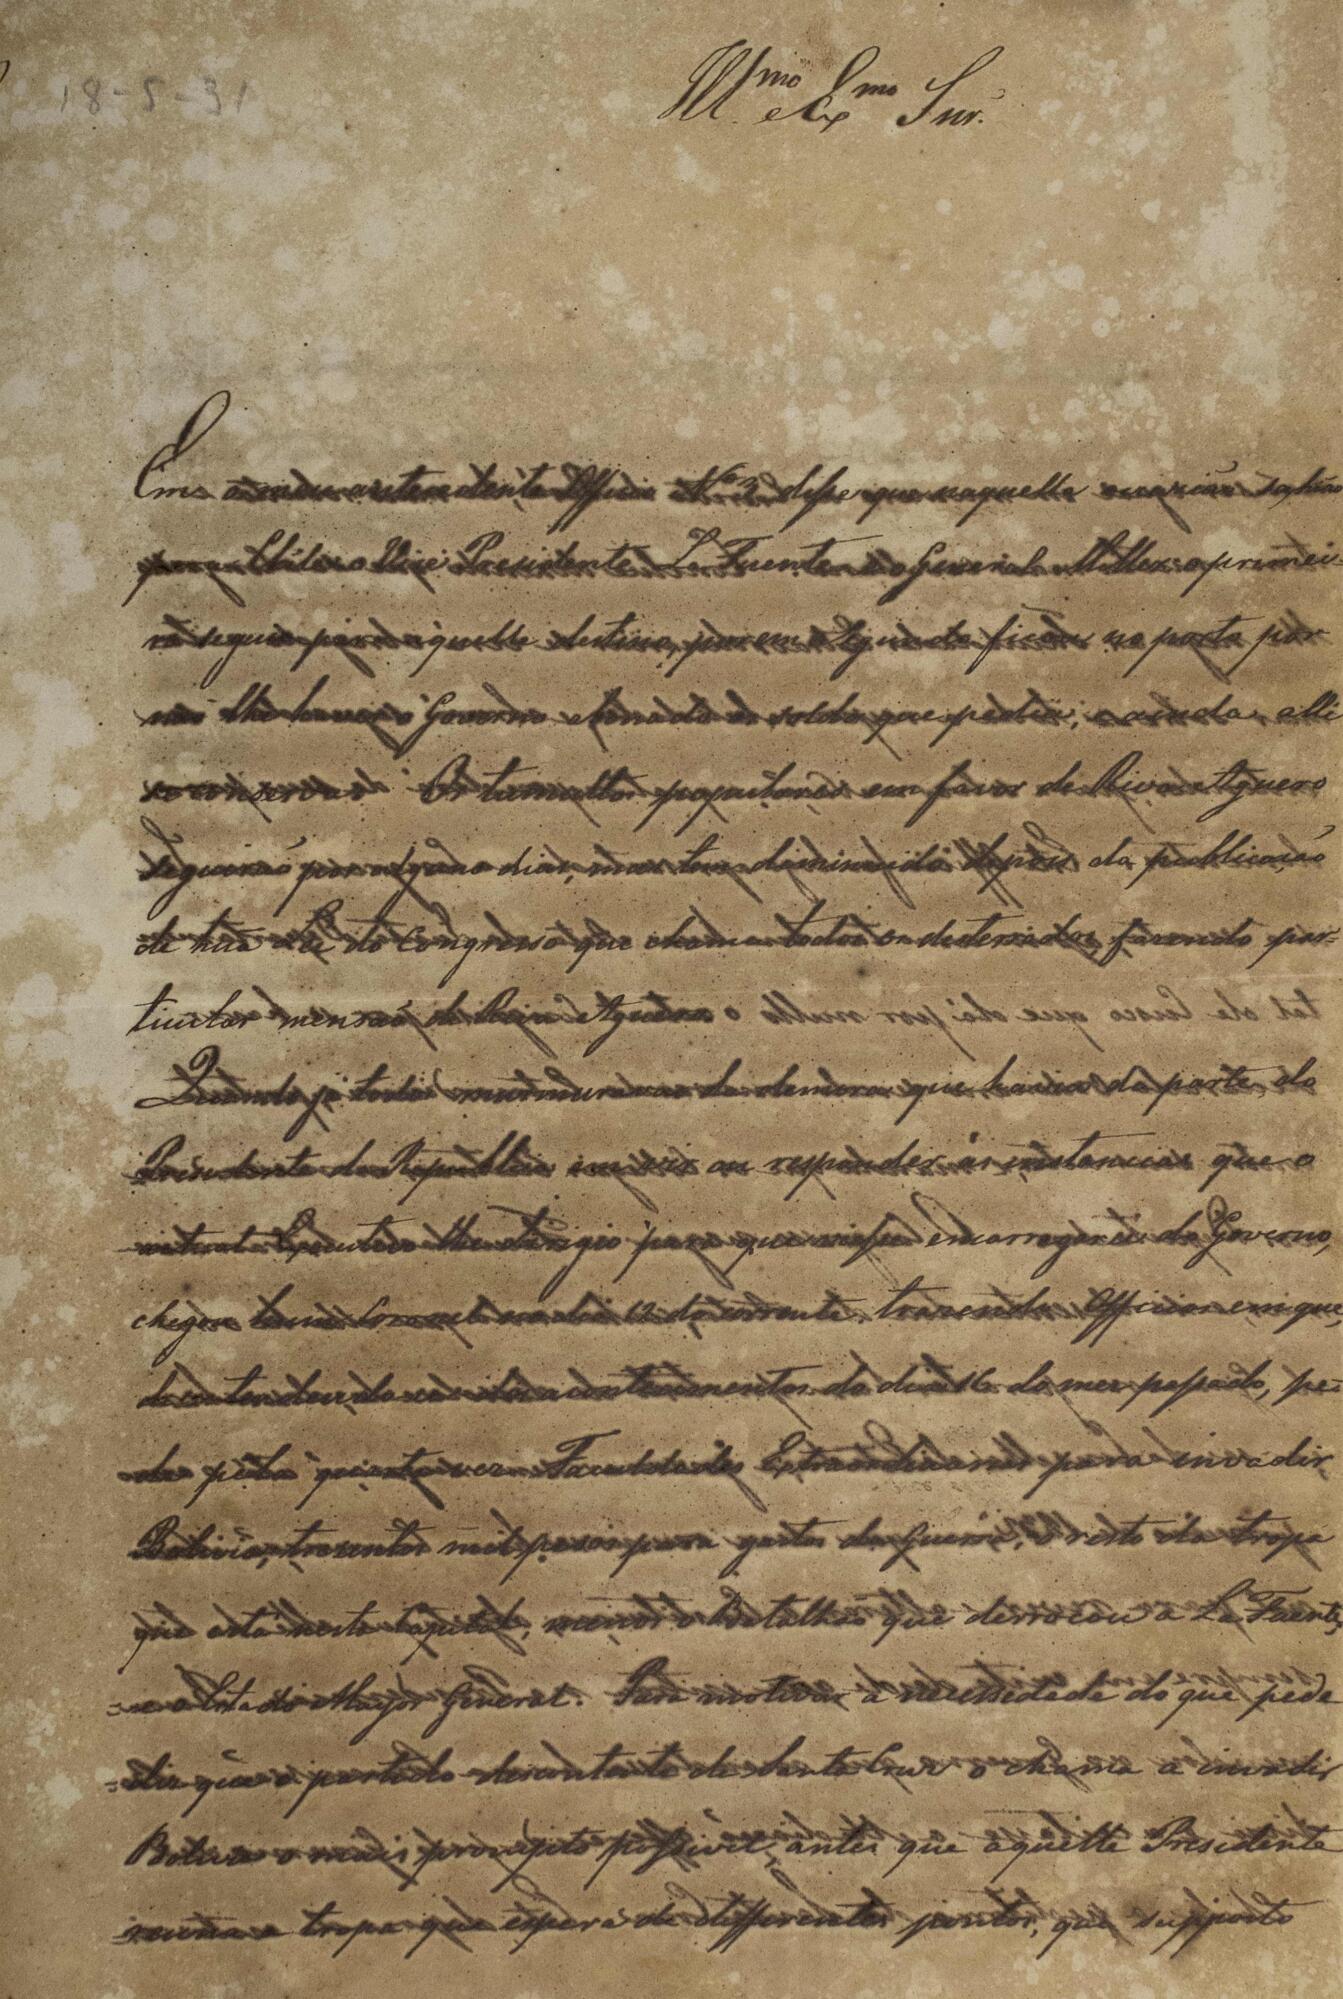 18-5-31
Ill.mo e Ex.mo Snr.
Em o meu antecedente Officio Nº 3 disse que naquella occazião sahião
para Chile o Vice Presidente La Fuente e o General Miller: o primei-
ro seguio para aquelle destino, porem o segundo ficou no porto por
não lhe haver o Governo abonado os soldos que pedia; e ainda alli
se conserva. Os tumultos populares em favor de Riva Aguero
seguirão por alguns dias, mas tem diminuido depois da publicação
de huã Lei do Congresso que chama todos os desterrados, fazendo par-
ticular mensão de Riva Aguero.
Quando já todos murmuravão da demora que havia da parte do
Presidente da Republica em vir ou responder ás instancias que o
actual Executivo lhe dirigio para que viesse encarregarse do Governo,
chegou hum Coronel no dia 12 do corrente trazendo Officios em que,
dos acontecimentos do dia 16 do mez passado, pe-
de pela quarta vez Faculdades Extraordinarias para invadir
Bolivia, trezentos mil pezos para gastos da Guerra, o resto da tropa
que está nesta Capital, menos o Batalhão que derrocou a La Fuente,
e o Estado Mayor General. Para motivar a necessidade do que pede
diz que o partido descontente de Santa Cruz o chama a invadir
Bolivia o mais prompto possivel, antes que aquelle Presidente
reuna a tropa que espera de differentes pontos, que supposto